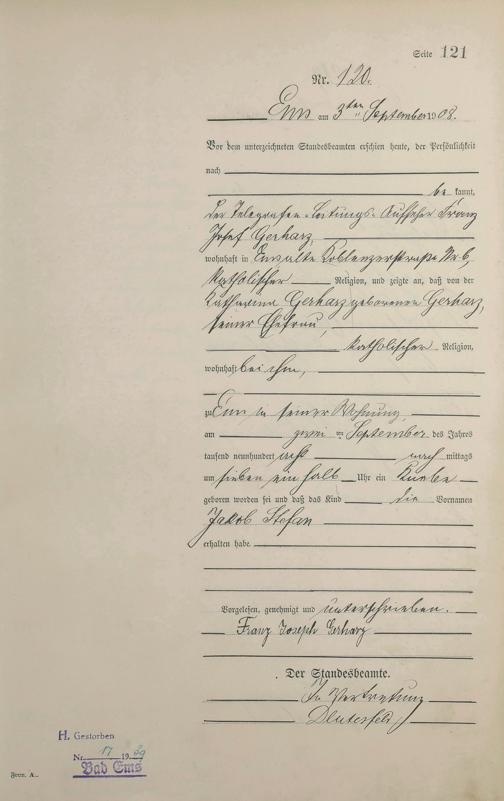 Seite 121
Nr. 120.
Ems am 3ten September 1908.
Vor dem unterzeichneten Standesbeamten erschien heute, der Persönlichkeit
nach
be kannt,
der Telegrafen-Leitungs-Aufseher Franz
Josef Gerharz,
wohnhaft in Ems, alte Koblenzerstraße Nr 6,
katholischer Religion, und zeigte an, daß von der
Katharina Gerharz geborenen Gerharz,
seiner Ehefrau,
katholischer Religion,
wohnhaft bei ihm,
zu Ems in seiner Wohnung
am zwei ten September des Jahres
tausend neunhundert acht nach mittags
um sieben ein halb Uhr ein Knabe
geboren worden sei und daß das Kind die Vornamen
Jakob Stefan
erhalten habe.
Vorgelesen, genehmigt und unterschrieben.
Franz Joseph Gerharz
Der Standesbeamte.
In Vertretung
H. Gestorben
Nr. 17 19
Bad Ems
Form. A.